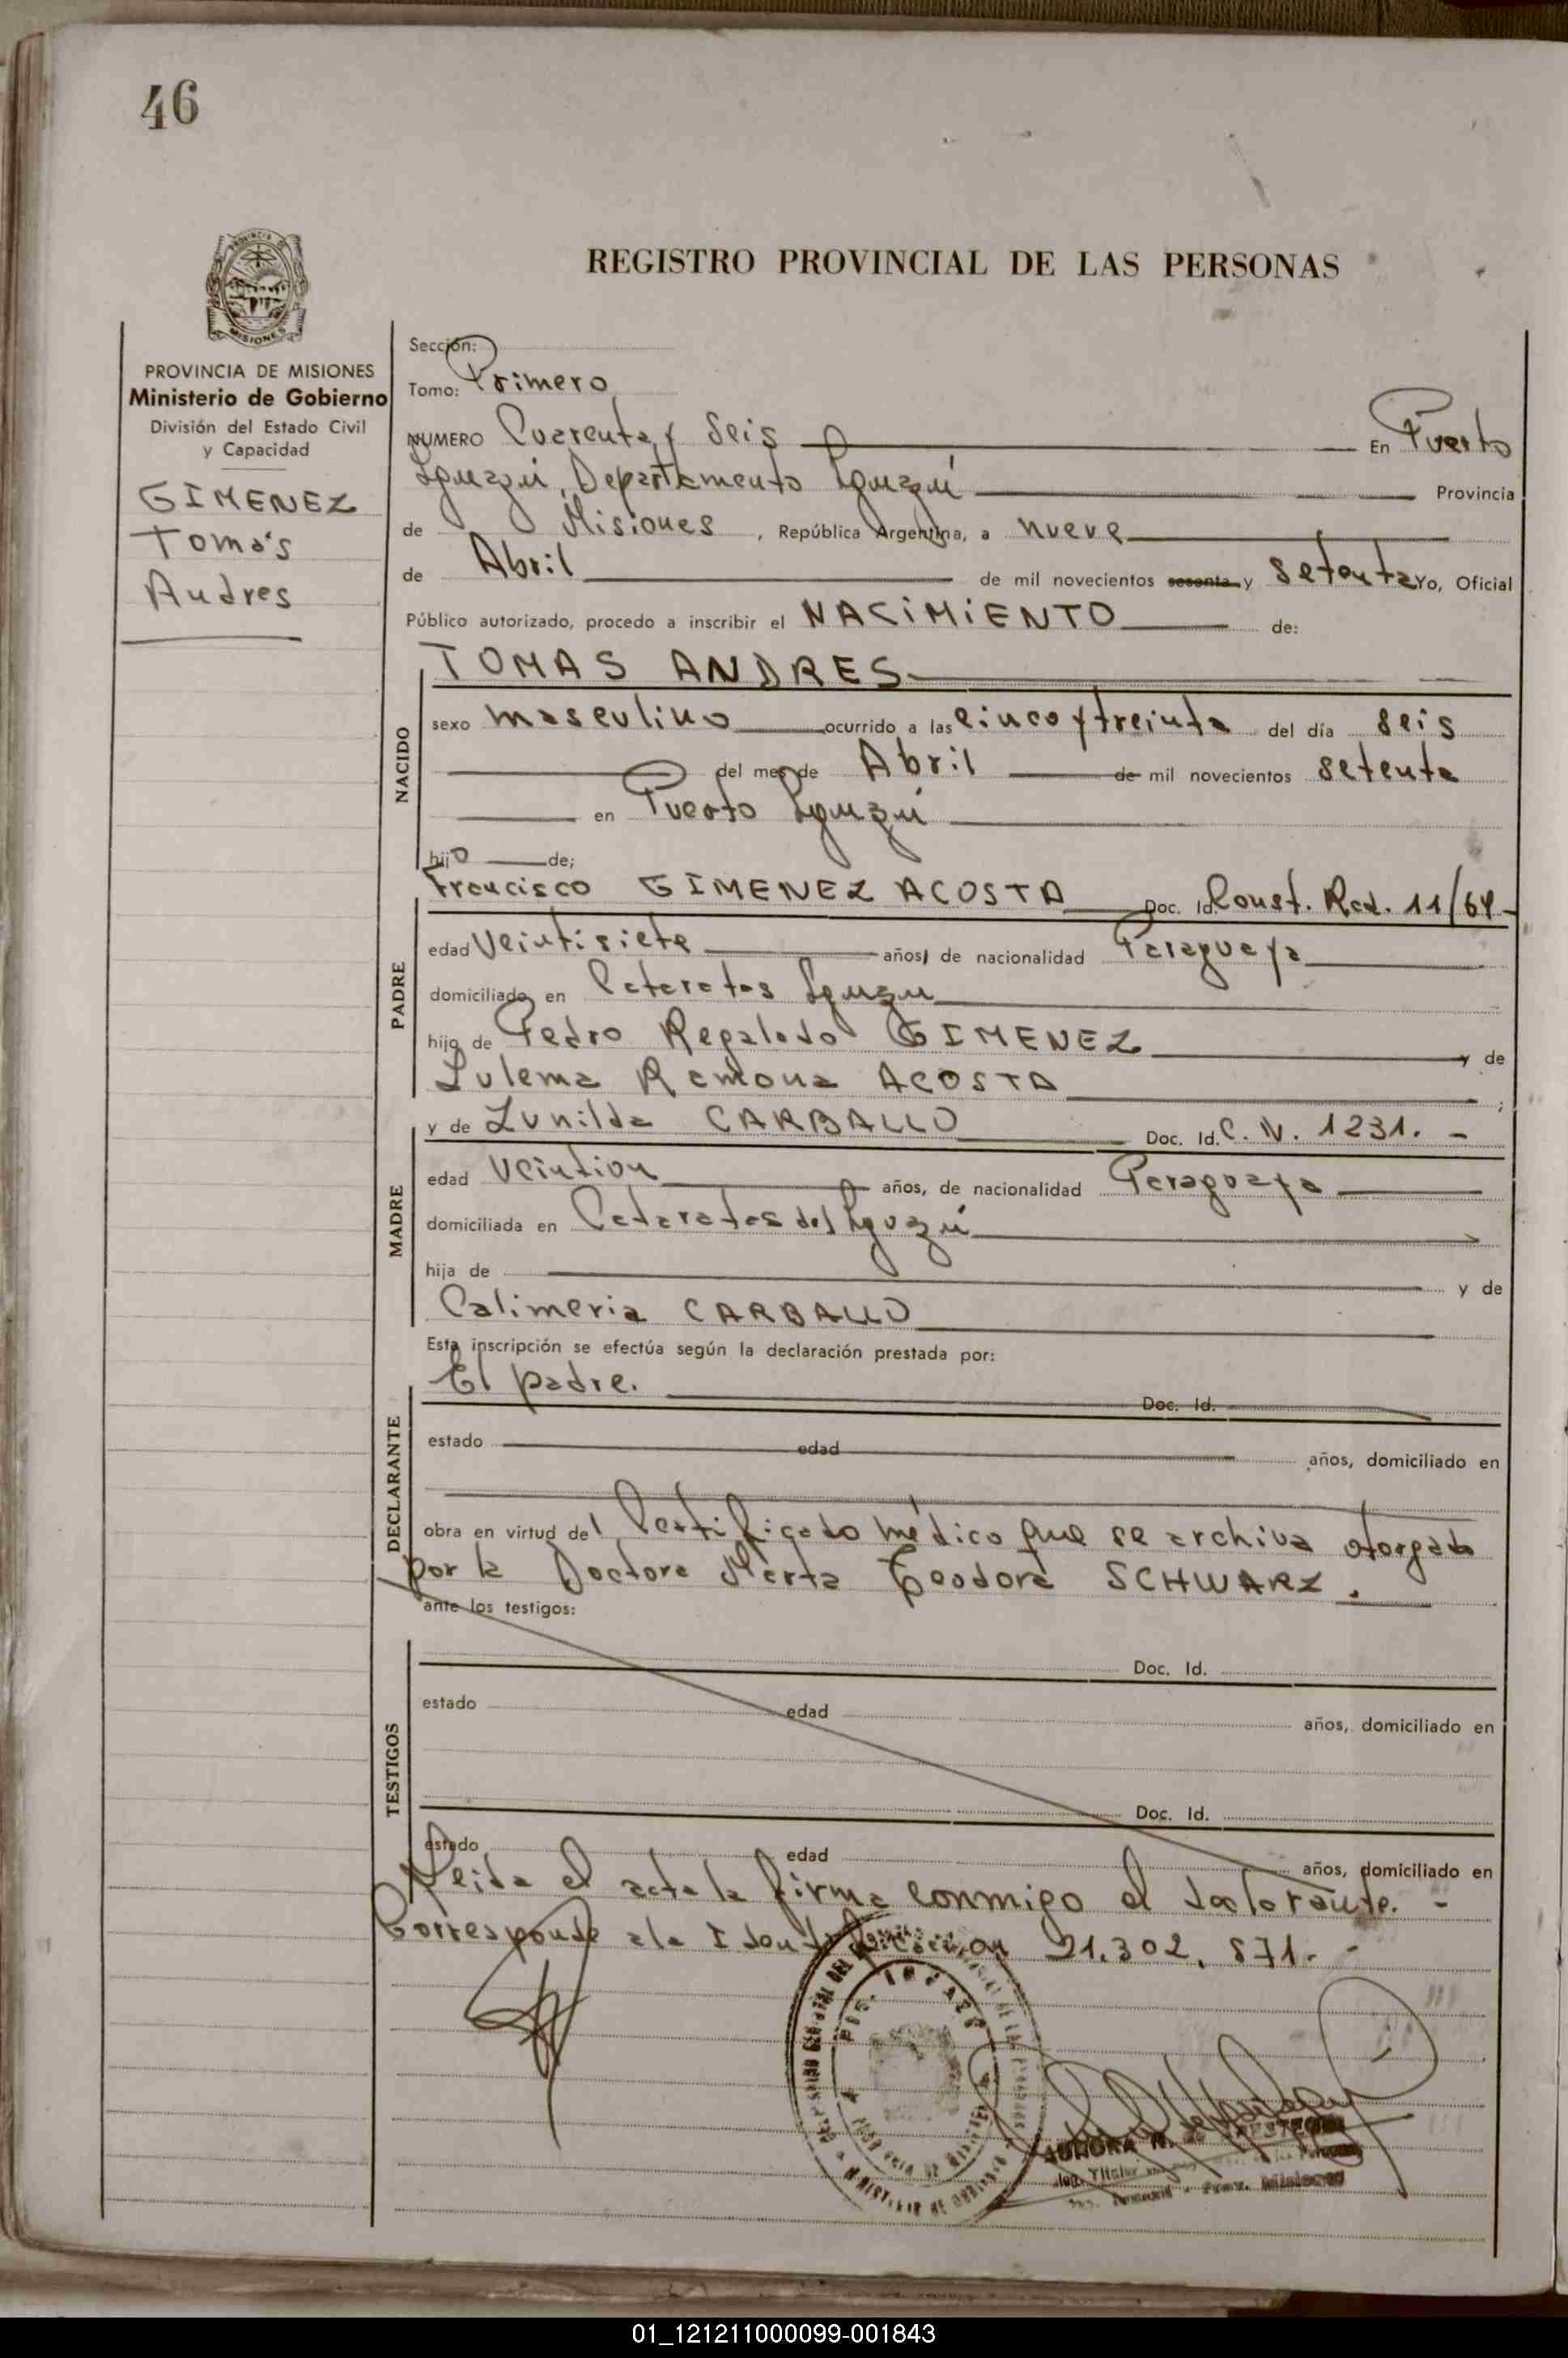 46
REGISTRO PROVINCIAL DE LAS PERSONAS
MISIONES
PROVINCIA DE MISIONES
Ministerio de Gobierno
División del Estado Civil
y Capacidad
GIMENEZ
Tomás
Andres
Sección:
Tomo: Primero
NUMERO Cuarenta y Seis En Puerto
Iguazú, Departamento Iguazú Provincia
de Misiones, República Argentina, a nueve
de Abril de mil novecientos sesenta y Setenta Yo, Oficial
Público autorizado, procedo a inscribir el NACIMIENTO de:
TOMAS ANDRES
NACIDO
sexo masculino ocurrido a las cinco y treinta del día seis
del mes de Abril de mil novecientos setenta
en Puerto Iguazú
hijo de;
PADRE
Francisco GIMENEZ ACOSTA Doc. Id. Const. Rad. 11/64-
edad Veintisiete años, de nacionalidad Paraguaya
domiciliado en Cataratas Iguazu
hijo de Pedro Regalado GIMENEZ y de
Zulema Ramona ACOSTA ;
MADRE
y de Zunilda CARBALLO Doc. Id. C. N. 1231. -
edad Veintiun años, de nacionalidad Paraguaya
domiciliada en Cataratas del Iguazú
hija de y de
Calimeria CARBALLO
Esta inscripción se efectúa según la declaración prestada por:
DECLARANTE
El padre. Doc. Id.
estado edad años, domiciliado en
obra en virtud del Certificado médico que se archiva otorgado
por la Doctora Marta Teodora SCHWARZ.
ante los testigos:
TESTIGOS
Doc. Id.
estado edad años, domiciliado en
Doc. Id.
estado edad años, domiciliado en
Leida el acta la firma conmigo el declarante. -
Corresponde a la Identificacion 21.302.871. -
AURORA
Misiones
01_121211000099-001843